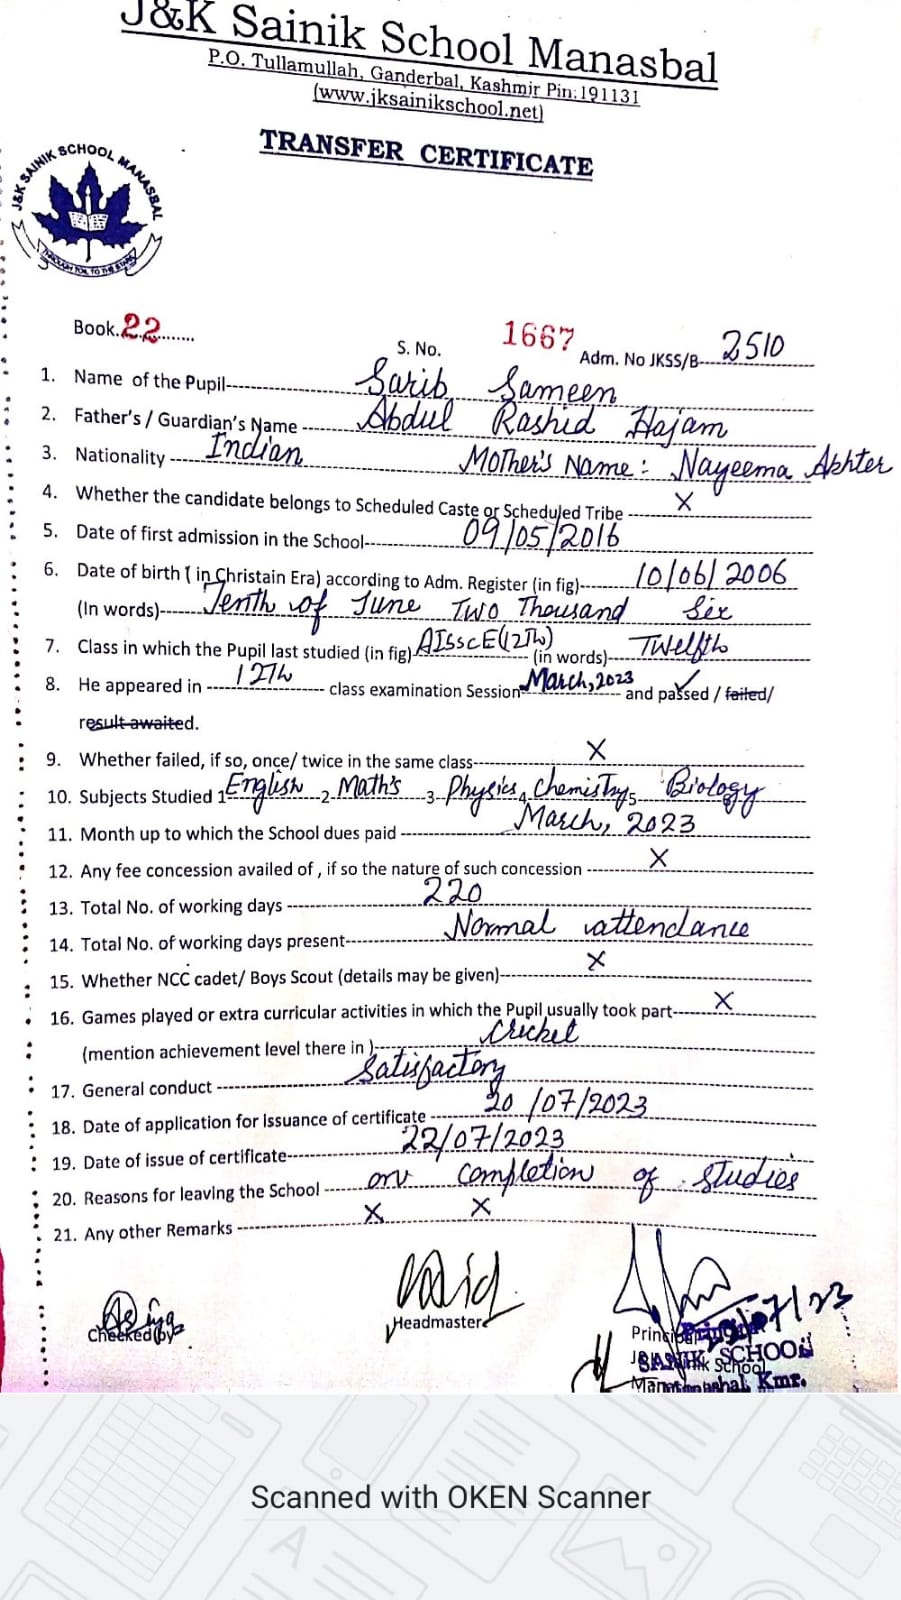 J&K Sainik School Manasbal
P.O. Tullamullah, Ganderbal, Kashmir Pin:191131
(www.jksainikschool.net)
TRANSFER CERTIFICATE
J&K SAINIK SCHOOL MANASBAL
THROUGH TOIL TO THE STARS
Book.22........
S. No. 1667 Adm. No JKSS/B-----2510
1. Name of the Pupil---- Sarib Sameen
2. Father's / Guardian's Name ---- Abdul Rashid Hajam
3. Nationality ---- Indian Mother's Name: Nayeema Akhter
4. Whether the candidate belongs to Scheduled Caste or Scheduled Tribe ---- X
5. Date of first admission in the School---- 09/05/2016
6. Date of birth ( in Christain Era) according to Adm. Register (in fig)---- 10/06/2006
(In words)---- Tenth of June Two Thousand Six
7. Class in which the Pupil last studied (in fig) AISSCE(12Th) (in words)-- Twelfth
8. He appeared in ---- 12Th ---- class examination Session March,2023 and passed / failed/
result awaited.
9. Whether failed, if so, once/ twice in the same class---- X
10. Subjects Studied 1 English 2 Maths 3 Physics 4 Chemistry 5 Biology
11. Month up to which the School dues paid ---- March, 2023
12. Any fee concession availed of , if so the nature of such concession ---- X
13. Total No. of working days ---- 220
14. Total No. of working days present---- Normal attendance
15. Whether NCC cadet/ Boys Scout (details may be given)---- X
16. Games played or extra curricular activities in which the Pupil usually took part---- X
(mention achievement level there in )---- Cricket
17. General conduct ---- Satisfactory
18. Date of application for issuance of certificate ---- 20/07/2023
19. Date of issue of certificate---- 22/07/2023
20. Reasons for leaving the School ---- on completion of studies
21. Any other Remarks ---- X X
Checked by
Headmaster
Principal
SAINIK SCHOOL
Kmr.
Scanned with OKEN Scanner